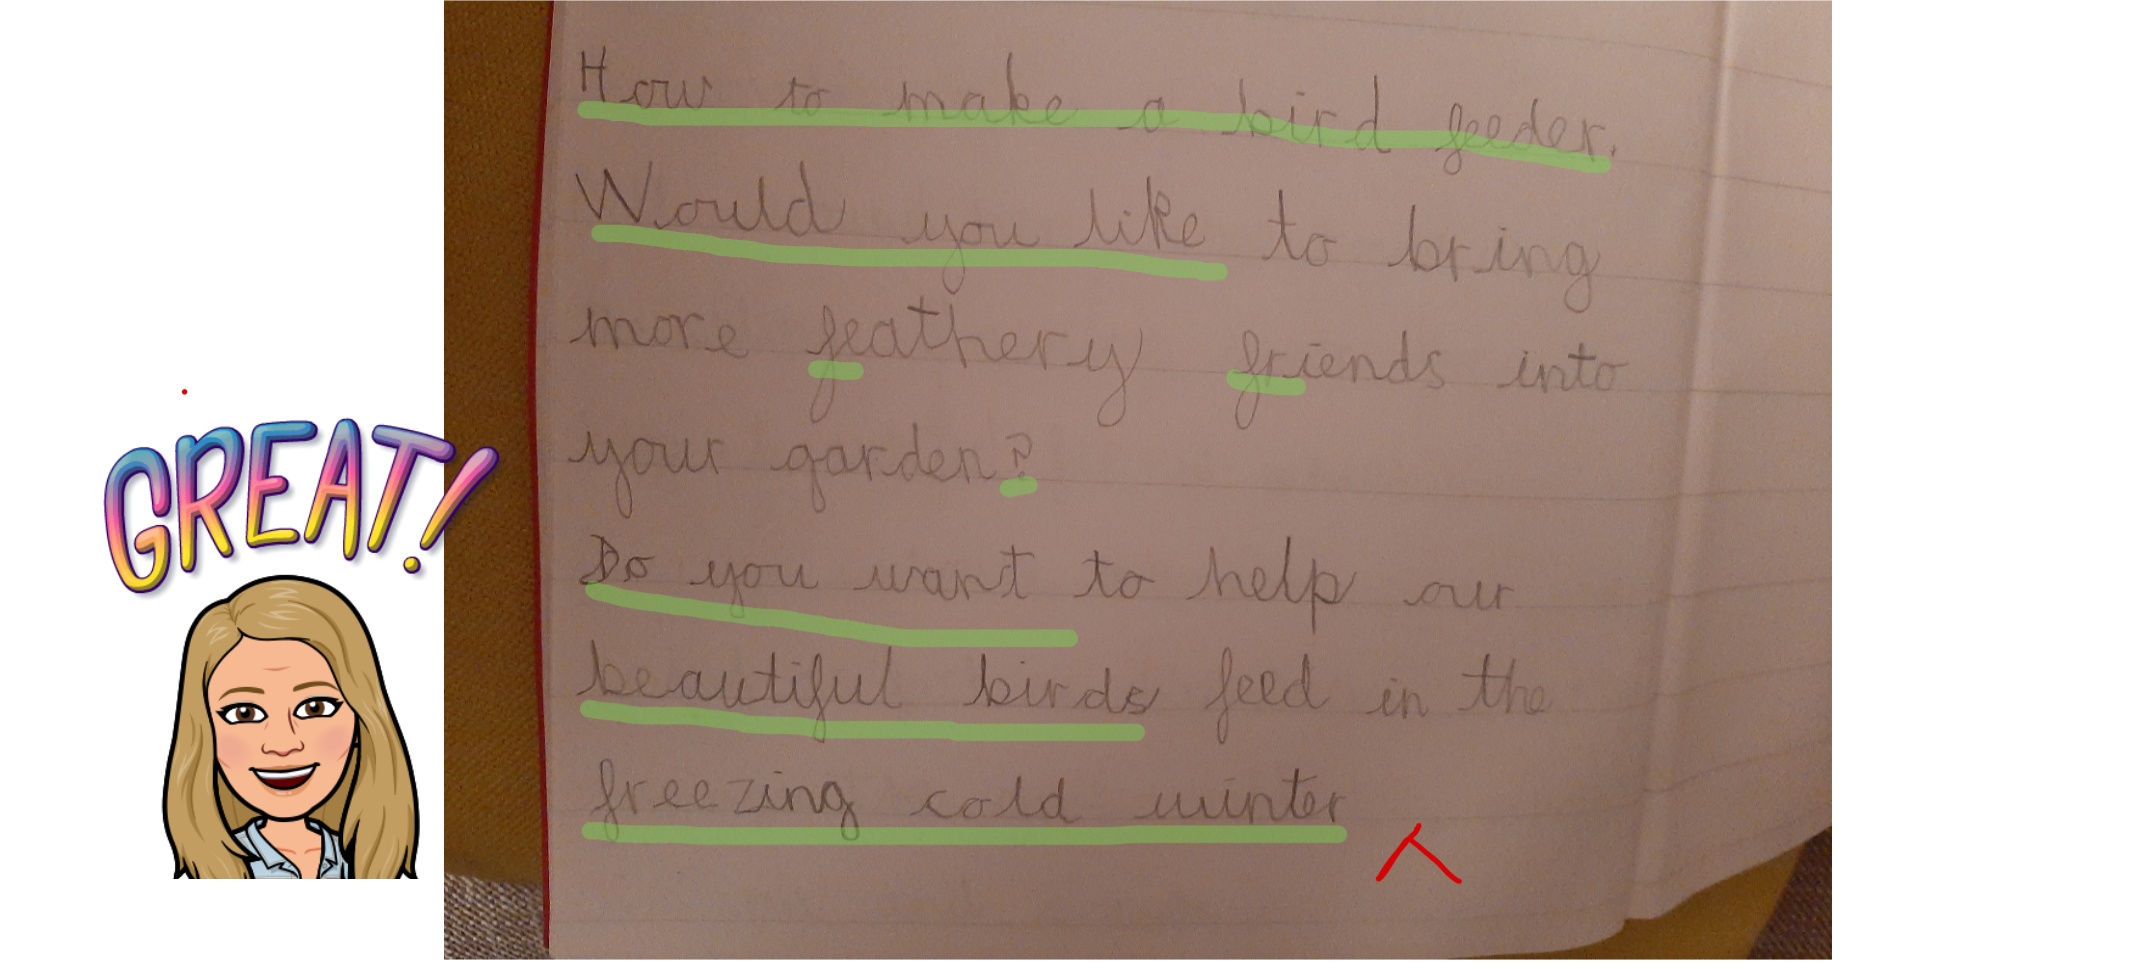 How to make a bird feeder.
Would you like to bring
more feathery friends into
your garden?
Do you want to help our
beautiful birds feed in the
freezing cold winter
GREAT!